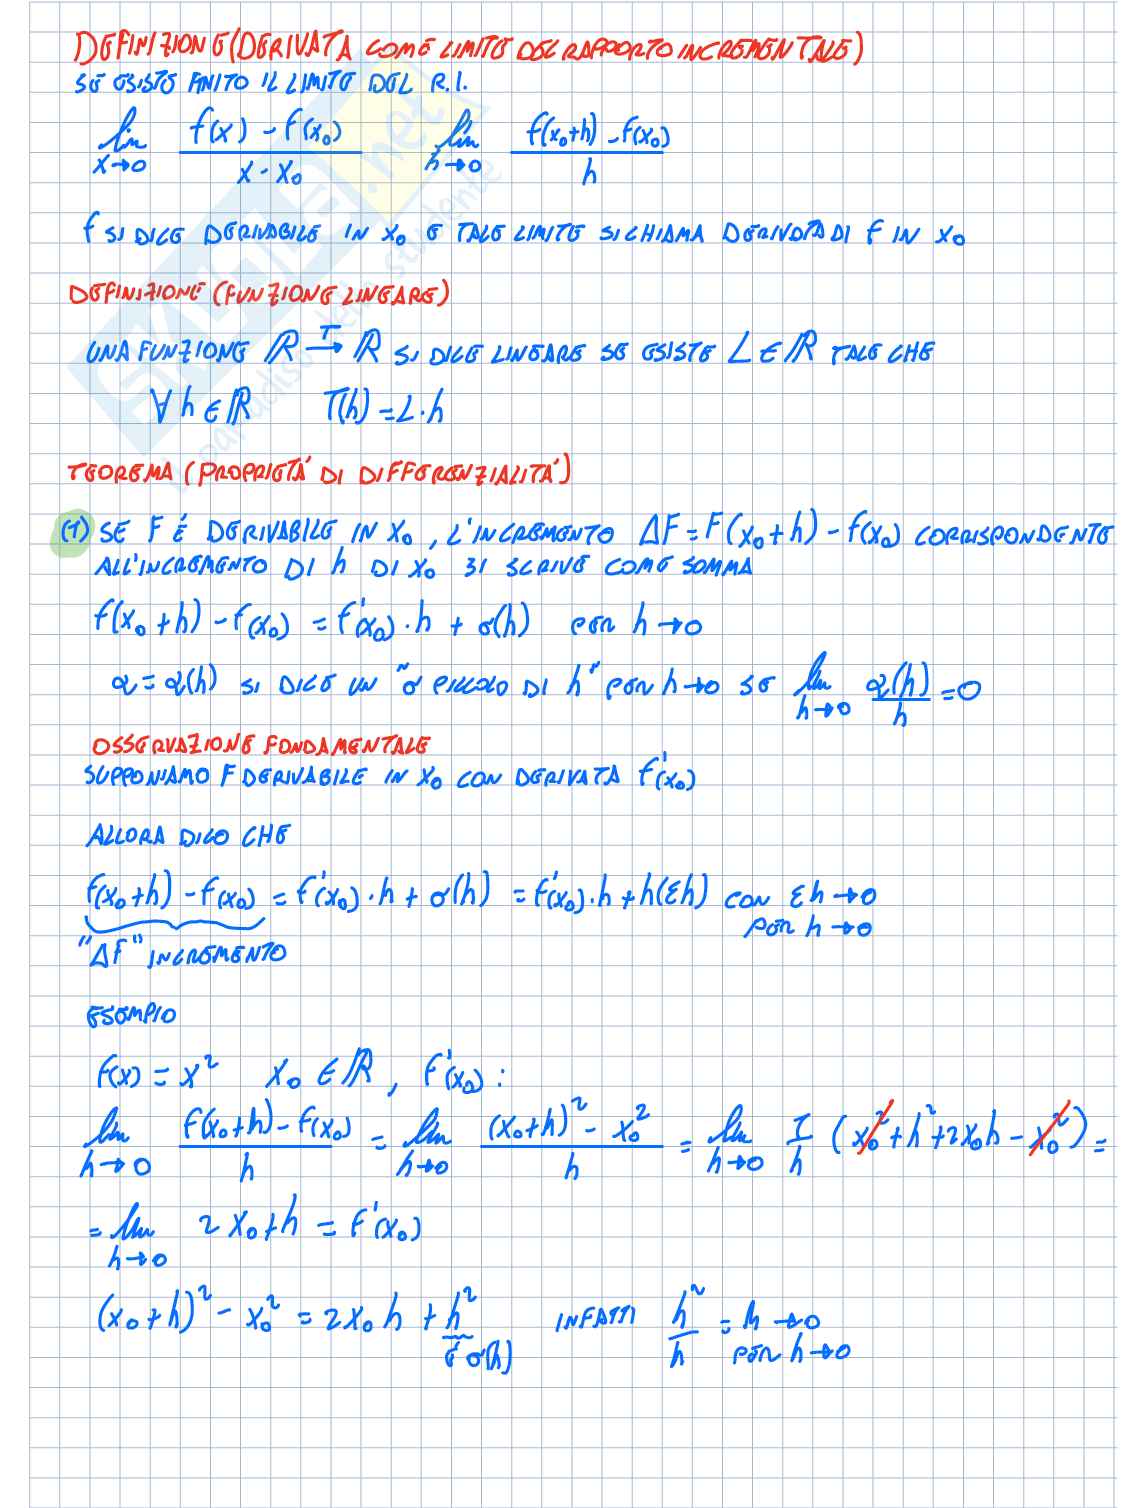 DEFINIZIONE (DERIVATA COME LIMITE DEL RAPPORTO INCREMENTALE)
SE ESISTE FINITO IL LIMITE DEL R.I.
lim x→0 (f(x) - f(x₀))/(x - x₀) lim h→0 (f(x₀+h) - f(x₀))/h
f SI DICE DERIVABILE IN x₀ E TALE LIMITE SI CHIAMA DERIVATA DI F IN x₀
DEFINIZIONE (FUNZIONE LINEARE)
UNA FUNZIONE ℝ →ᵀ ℝ SI DICE LINEARE SE ESISTE L ∈ ℝ TALE CHE
∀ h ∈ ℝ T(h) = L·h
TEOREMA (PROPRIETÁ DI DIFFERENZIALITÁ)
(1) SE F É DERIVABILE IN X₀, L'INCREMENTO ΔF = F(x₀+h) - f(x₀) CORRISPONDENTE
ALL'INCREMENTO DI h DI X₀ SI SCRIVE COME SOMMA
f(x₀+h) - f(x₀) = f'(x₀)·h + σ(h) PER h→0
α = α(h) SI DICE UN "σ PICCOLO DI h" PER h→0 SE lim h→0 α(h)/h = 0
OSSERVAZIONE FONDAMENTALE
SUPPONIAMO F DERIVABILE IN X₀ CON DERIVATA f'(x₀)
ALLORA DICO CHE
f(x₀+h) - f(x₀) = f'(x₀)·h + σ(h) = f'(x₀)·h + h(εh) CON εh→0
PER h→0
"ΔF" INCREMENTO
ESEMPIO
f(x) = x² X₀ ∈ ℝ, F'(x₀):
lim h→0 (f(x₀+h) - f(x₀))/h = lim h→0 ((x₀+h)² - x₀²)/h = lim h→0 1/h (x₀² + h² + 2x₀h - x₀²) =
= lim h→0 2x₀+h = F'(x₀)
(x₀+h)² - x₀² = 2x₀h + h² INFATTI h²/h = h→0
É σ(h) PER h→0
SKUOLA.net
il paradiso dello studente